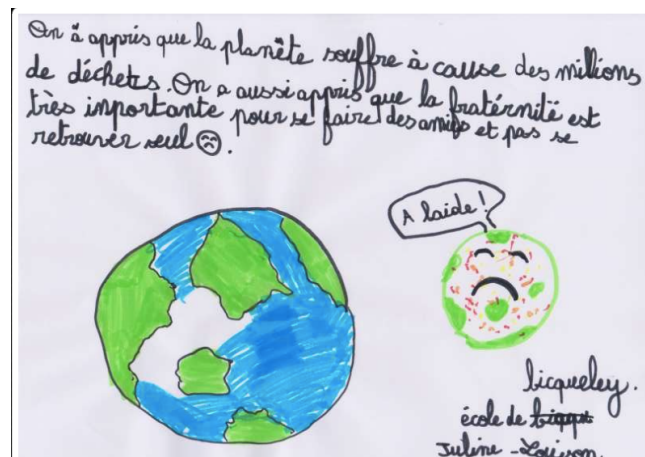 On à appris que la planète souffre à cause des millions
de déchets. On a aussi appris que la fratérnité est
très inportante pour se faire des amifs et pas se
retrouver seul ☹.
A laide !
bicqueley.
école de
Juline - Louison